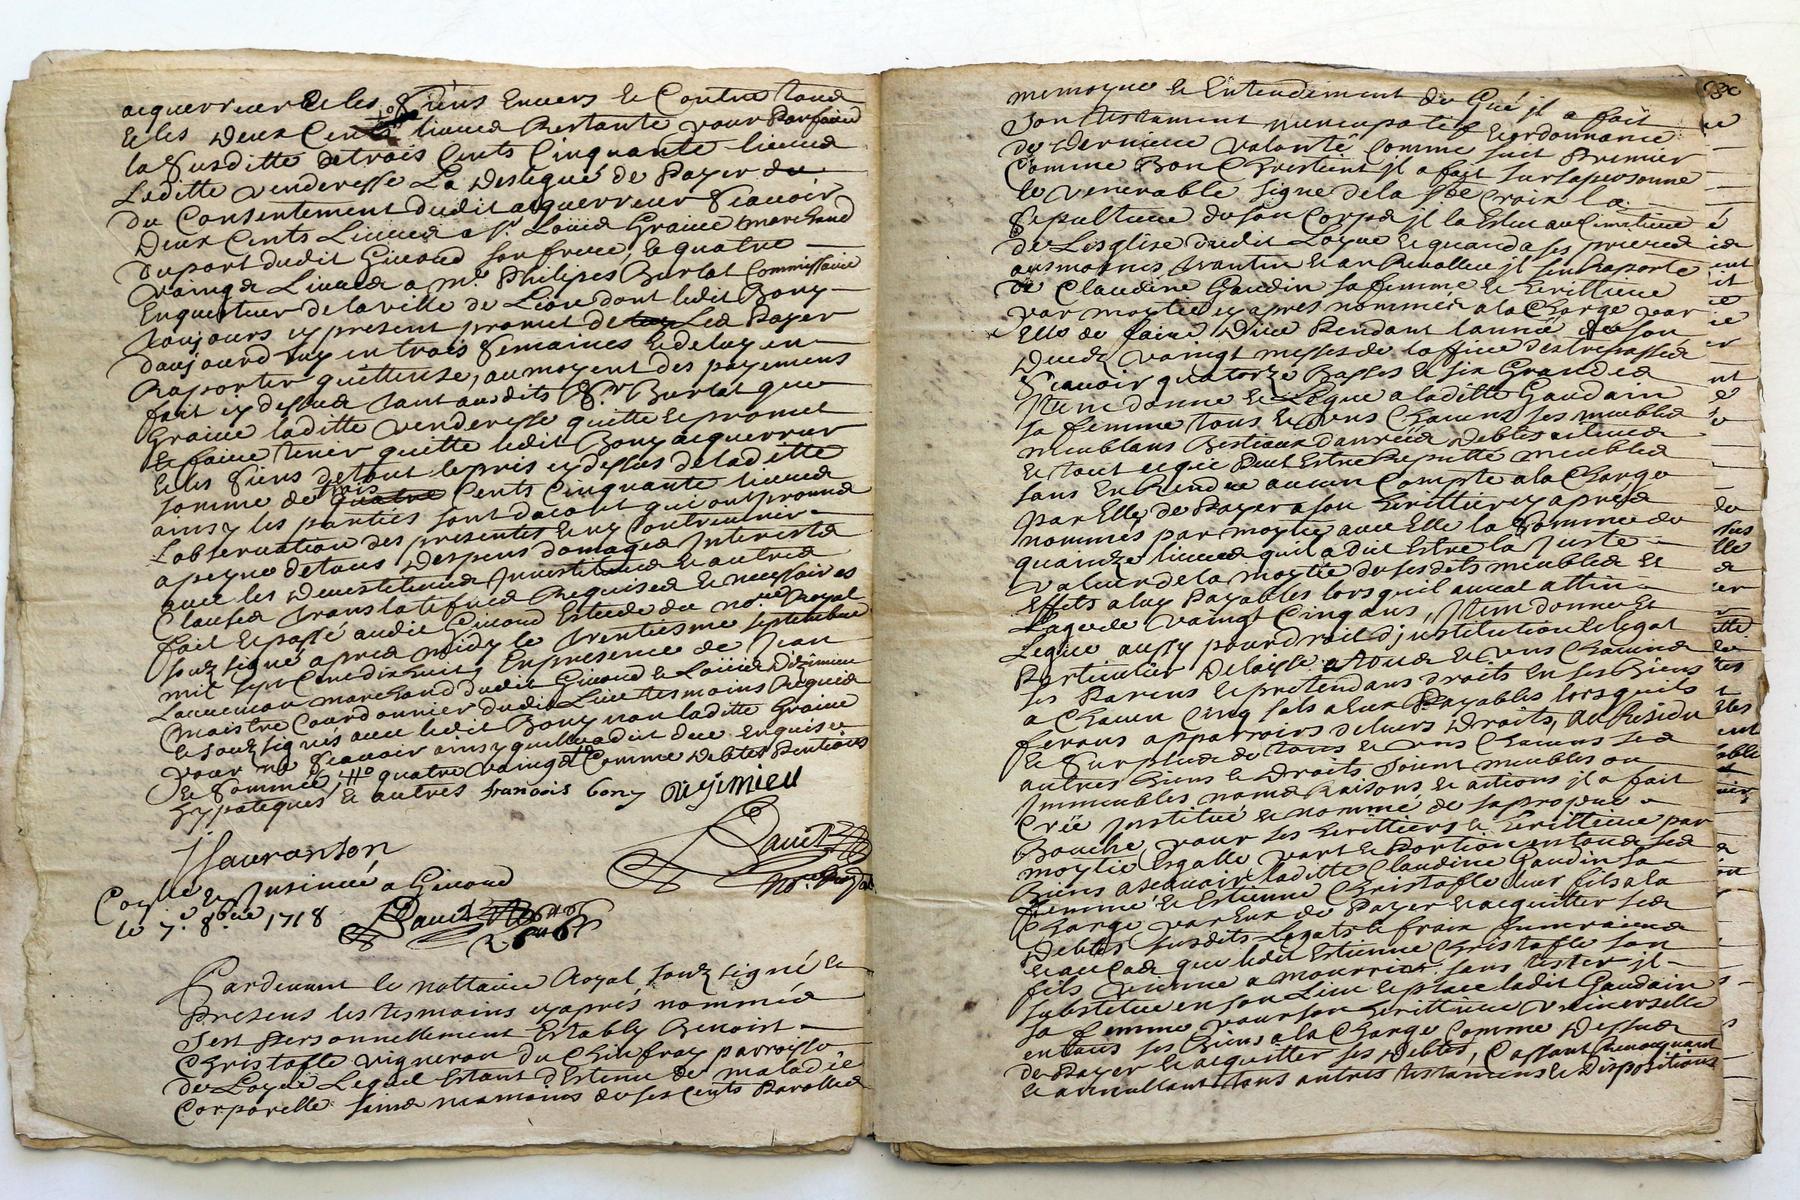 acquerreur & les siens Envers & Contre tous
& les deux Cents livres Restante pour Parfaire
la susditte de trois Cents Cinquante livres
Laditte venderesse La deslegué de Payer du
du Consentement dudit acquerreur scavoir
Deux Cents Livres a Sr. Loüis Graine marchand
du port dudit Givord son frere, & quatre
vaingts Livres a mr. Philipes Burlat Commissaire
Enquesteur de la ville de Lion dont ledit Bony
toujours cy present promet de Les Payer
daujourdhuy en trois semaines & de luy en
Raporter quittense, au moyent des payements
fait cy dessus tant audits Sr. Burlat que
Graine laditte venderesse quitte & promet
& faire tenir quitte ledit Bony acquerreur
& les siens de tout le pris cy dessus de laditte
somme de trois Cents Cinquante livres
ainsy les parties sont dacord qui ont promis
Lobservation des presentes & ny Contrevenir
a peyne de tous despens domages Interests
avec les devestitures Investitures & autres
Clauses translatifves Requises & necessaires
fait & passé audit Givord Estude du nore. Royal
souz signé apres midy le trentiesme septembre
mil sept Cent dix huit, En presence de Jean
marchand dudit Givord & Loüis Dizimieu
maistre Courdonnier dudit Lieu tesmoins Requis
& souz signés avec ledit Bony non laditte Graine
pour ne scavoir ainsy quelle a dit de ce Enquise
& sommée, quatre vaingts Comme debtes Pentions
hypoteques & autres francois bony Disimieu
Davit
nore. Royal
Coplle & Insinué a Givord
le 7e. 8bre 1718 Davit
Pardevant le nottaire Royal, souz signé &
Presens les tesmoins cy apres nommés
sest Personnellement Estably Benoist
Christofle vigneron du Chinfray parroisse
de Loyre Lequel Estant destenu de maladie
Corporelle sains neamoins de ses Cents Parolles
memoyre & Entendement de Gré il a fait
son testament nuncupatif & ordonnance
de derniere volonté Comme suit Premier
Comme Bon Chrestient il a fait sur sa personne
le venerable signe de la Ste Croix la
sepulture de son Corps il la Esleu au Cimitiere
de Lesglise dudit Loyre & quand a ses prieres
ausmones, trantin & an Revollu il sen Raporte
de Claudine Gaudin sa femme & heritiere
par moytié cy apres nommer a la Charge par
Elle de faire dire Pendant lannée de son
deceds vaingt messes de loffice des trepassés
scavoir quatorze Basses & six Grandes
Item donne & Legue a laditte Gaudain
sa femme tous & uns Chacuns ses meubles
meublans Bestiaux danrées debtes actives
& tout ce qui Peut Estre Reputté meubles
sans En Rendre aucun Compte a la Charge
par Elle de Payer a son heritier cy apres
nommés par moytié avec Elle la somme de
quainze livres quil a dit Estre la Juste
valeur de la moytié de sesdits meubles &
Effets a luy Payables lorsquil aurat attin
Lage de vaingt Cinq ans, Item donne &
Legue aussy pour droit dinstitution & legat
Particulier delaysse a tous & uns Chacuns
ses Parens & pretendans droits en ses Biens
a Chacun Cinq sols a Eux Payables lorsquils
feront apparroirs de leurs droits, au Residu
& surplus de tous & uns Chacuns ses
autres biens & droits soient meubles ou
Immeubles noms Raisons & actions il a fait
Créé Institué & nommé de sa propre
Bouche, pour ses heritiers & heritiere par
moytié Esgalle part & Portion en tous ses
Biens a scavoir laditte Claudine Gaudin sa
femme & Estienne Christofle leur fils a la
Charge par Eux de Payer & acquitter ses
debtes susdits Legats & fraix funeraires
& au Cas que ledit Estienne Christofle son
fils vienne a mourrir sans tester il
substitue en son Lieu & place ladit Gaudain
sa femme pour son heritiere universelle
en tous ses biens a la Charge Comme dessus
de Payer & acquitter ses debtes, Cassant Revoquant
& annullant tous autres testamens & dispositions